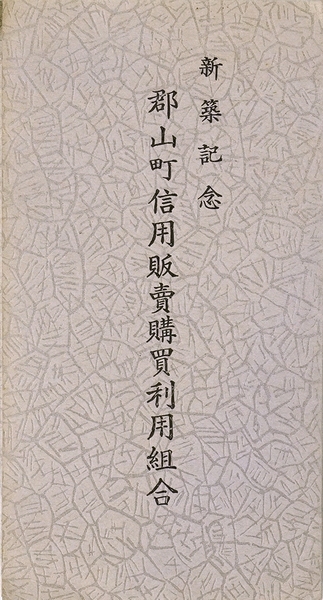 新築記念
郡山町信用販賣購買利用組合